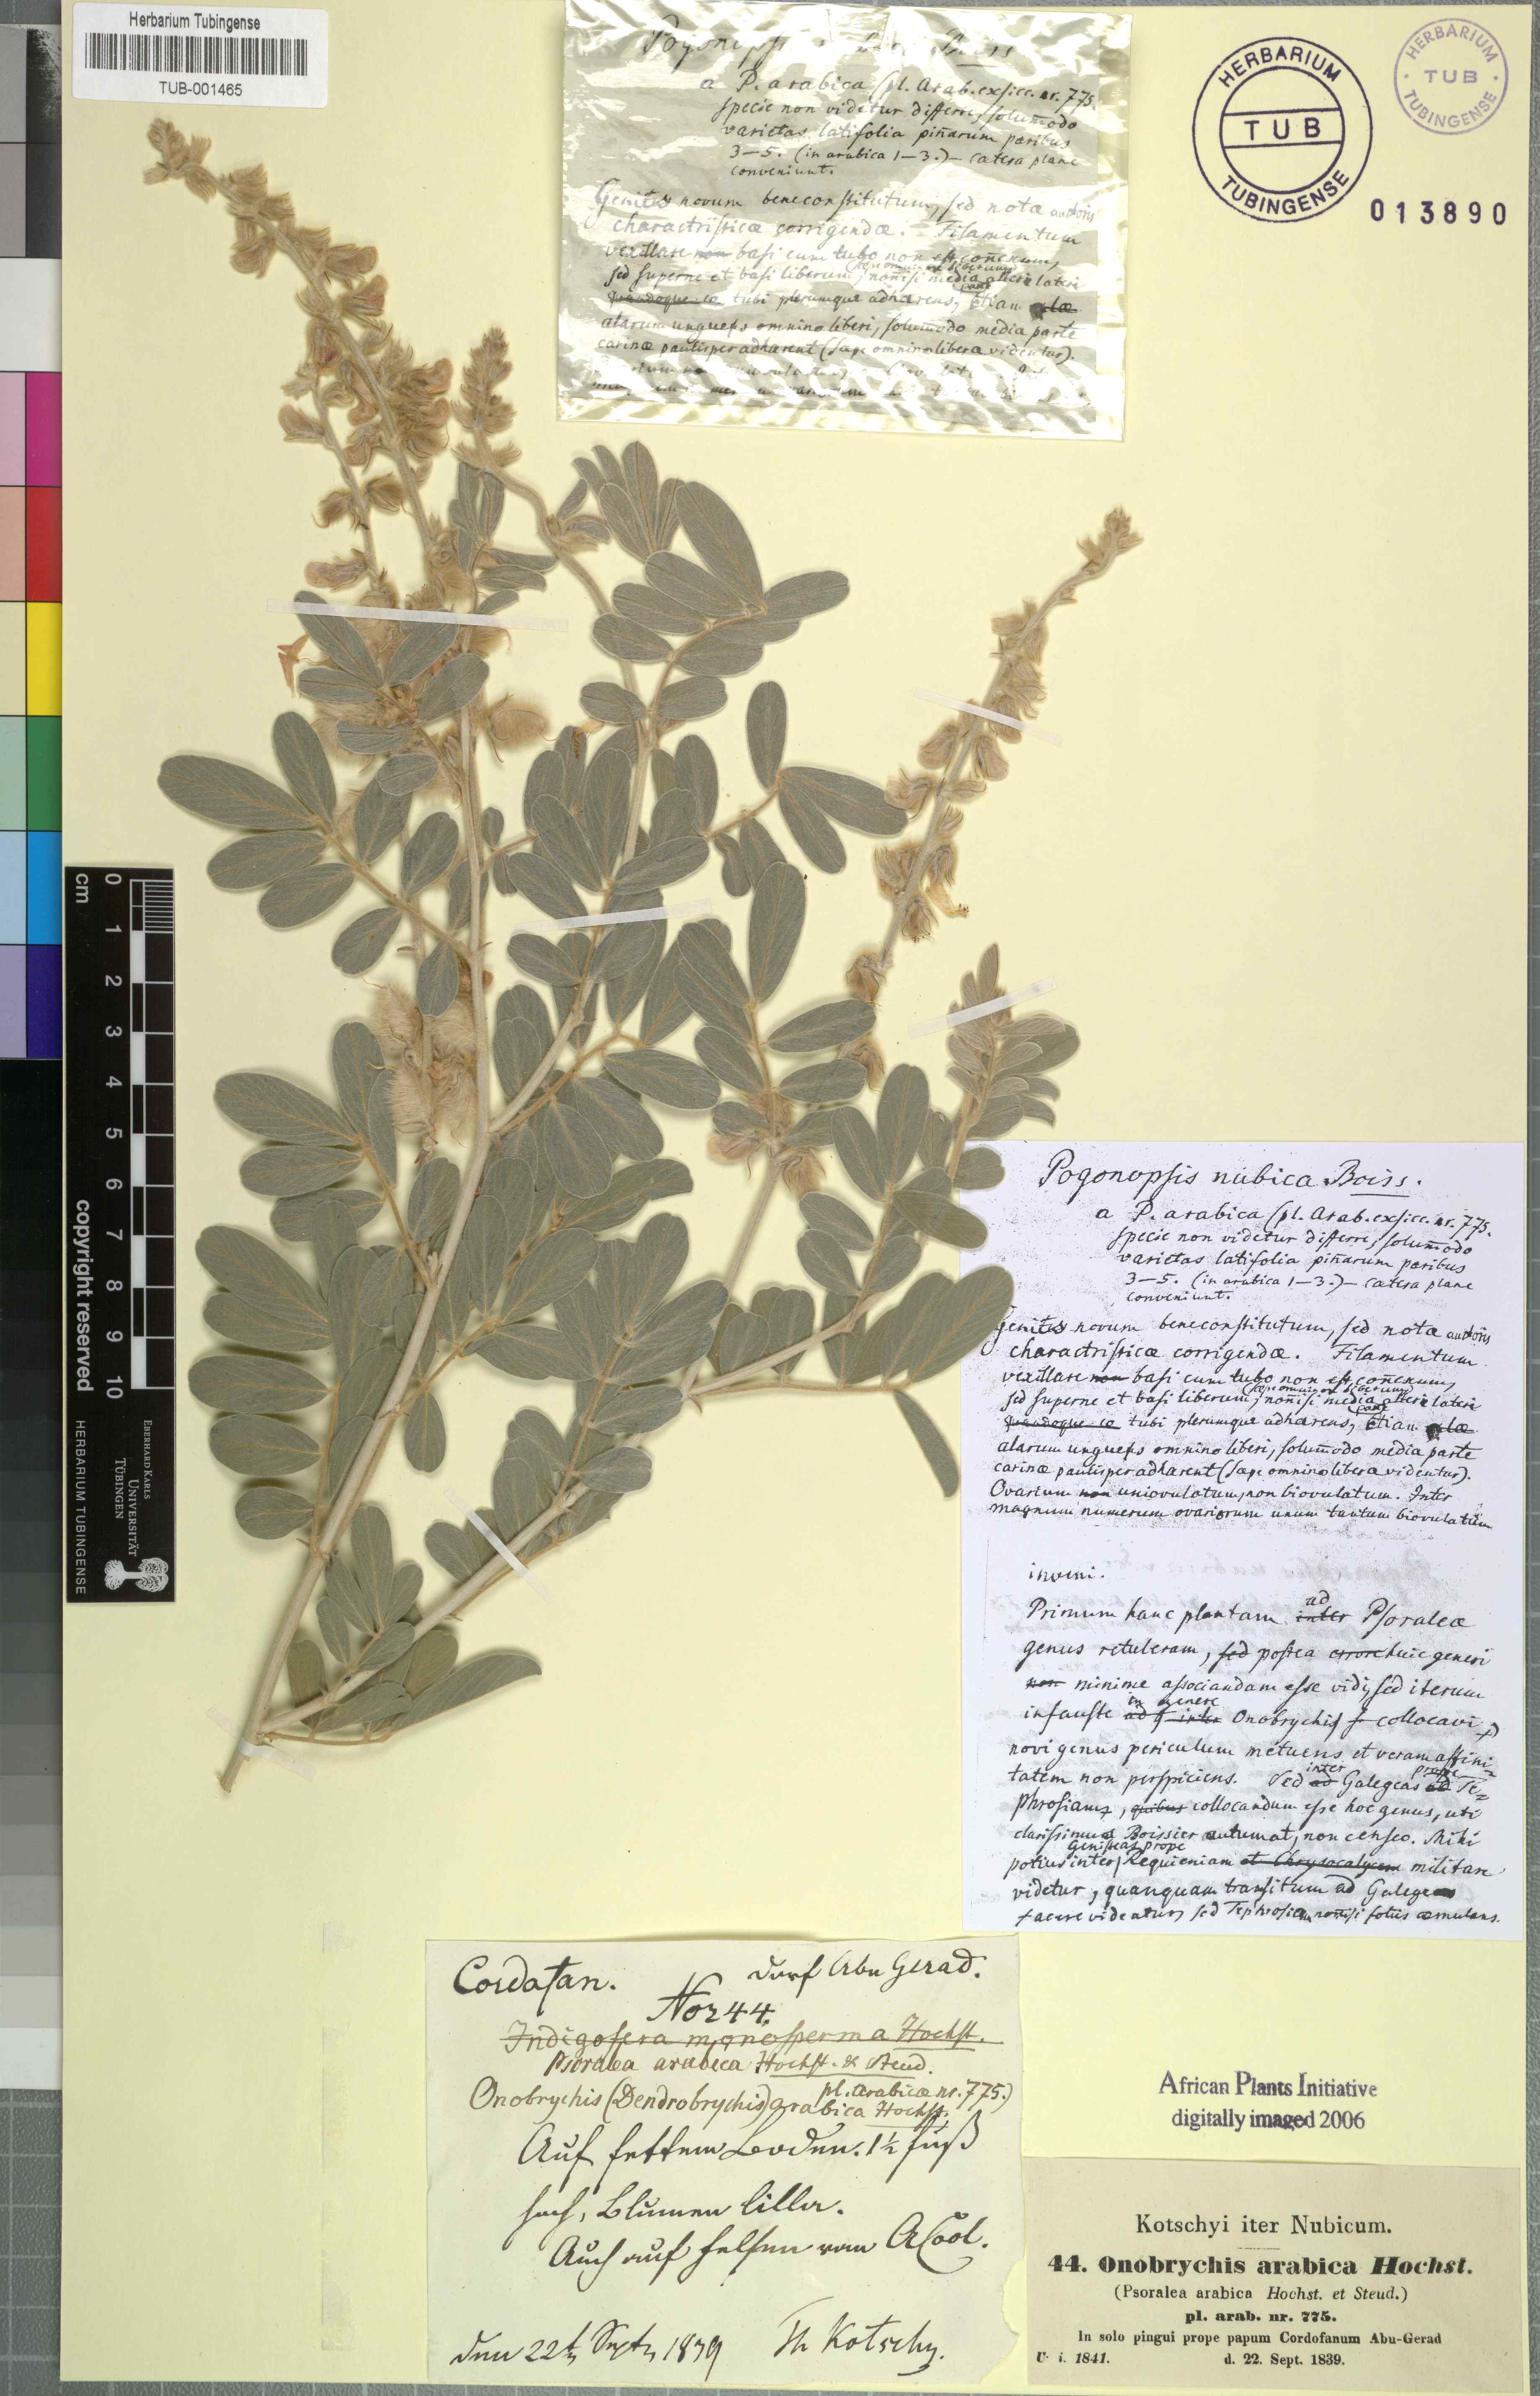 Herbarium Tubingense
TUB-001465
a P. arabica (pl. Arab. exsicc. nr. 775.
specie non videtur differre, solum̄odo
varietas latifolia pin̄arum paribus
3—5. (in arabica 1—3.) — cætera plane
conveniunt.
Genus novum bene constitutum, sed notæ auctoris
charactristicæ corrigendæ. Filamentum
vexillare non basi cum tubo non est con̄exum,
sed superne et basi liberum, (sæpe omnino liberum) non̄isi media parte alteri lateri
quandoque tubi plerumque adhærens, Etiam alæ
alarum ungues omnino liberi, solum̄odo media parte
carinæ paulisper adhærent (sæpe omnino libera videntur).
HERBARIUM
TUB
TUBINGENSE
HERBARIUM
TUB
TUBINGENSE
013890
cm 0 1 2 3 4 5 6 7 8 9 10
copyright reserved
HERBARIUM TUBINGENSE
EBERHARD KARLS
UNIVERSITÄT
TÜBINGEN
Pogonopsis nubica Boiss.
a P. arabica (pl. Arab. exsicc. nr. 775.
specie non videtur differre, solum̄odo
varietas latifolia pin̄arum paribus
3—5. (in arabica 1—3.) — cætera plane
conveniunt.
Genus novum bene constitutum, sed notæ auctoris
charactristicæ corrigendæ. Filamentum
vexillare non basi cum tubo non est con̄exum,
sed superne et basi liberum, (sæpe omnino liberum) non̄isi media parte alteri lateri
quandoque tubi plerumque adhærens, Etiam alæ
alarum ungues omnino liberi, solum̄odo media parte
carinæ paulisper adhærent (sæpe omnino libera videntur).
Ovarium non uniovulatum, non biovulatum. Inter
magnum numerum ovariorum unum tantum biovulatum
inveni.
Primum hanc plantam inter ad Psoraleæ
genus retuleram, sed postea errore huic generi
non minime associandam esse vidi, sed iterum
infauste in genere Onobrychis collocavi
novi genus periculum metuens et veram affini=
tatem non perspiciens. Sed ad inter Galegeas ad prope Te=
phrosiam, quibus collocandum esse hoc genus, uti
clarissimus Boissier autumat, non censeo. Mihi
potius inter Genisteas prope Requieniam et Chrysocalycem militare
videtur, quanquam transitum ad Galegeas
facere videatur, sed Tephrosiam non̄isi foliis æmulans.
Cordofan. Dorf Abu Gerad.
No 244.
Indigofera monosperma Hochst.
Psoralea arabica Hochst. & Steud.
pl. arabicæ nr. 775.)
Onobrychis (Dendrobrychis) arabica Hochst.
Auf fettem Boden. 1½ fuß
hoch, Blumen lilla.
Auch auf Felsen vom A Cool.
den 22t Sept 1839 Th Kotschy.
African Plants Initiative
digitally imaged 2006
Kotschyi iter Nubicum.
44. Onobrychis arabica Hochst.
(Psoralea arabica Hochst. et Steud.)
pl. arab. nr. 775.
In solo pingui prope papum Cordofanum Abu-Gerad
U. i. 1841. d. 22. Sept. 1839.